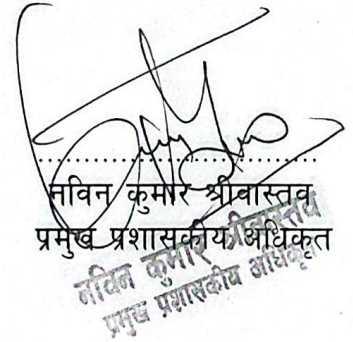 ....................................
नविन कुमार श्रीवास्तव
प्रमुख प्रशासकीय अधिकृत
नविन कुमार श्रीवास्तव
प्रमुख प्रशासकीय अधिकृत